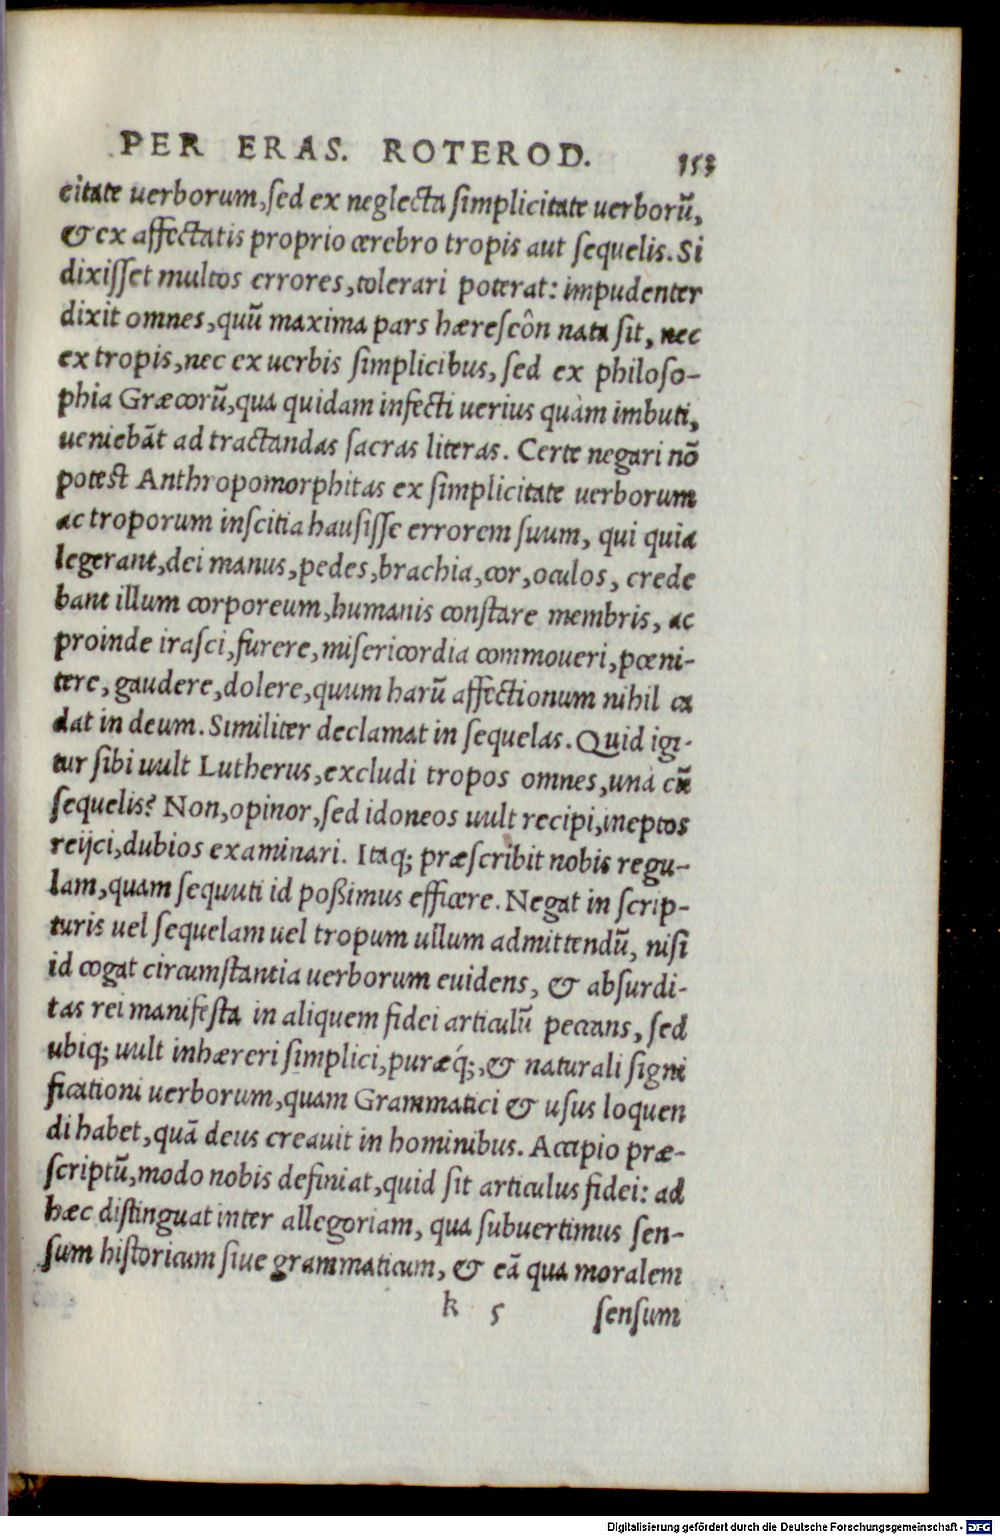 PER ERAS. ROTEROD. 153
citate uerborum, sed ex neglecta simplicitate uerborũ,
& ex affectatis proprio cerebro tropis aut sequelis. Si
dixisset multos errores, tolerari poterat: impudenter
dixit omnes, quũ maxima pars hæreseôn nata sit, nec
ex tropis, nec ex uerbis simplicibus, sed ex philoso-
phia Græcorũ, qua quidam infecti uerius quàm imbuti,
ueniebãt ad tractandas sacras literas. Certe negari nõ
potest Anthropomorphitas ex simplicitate uerborum
ac troporum inscitia hausisse errorem suum, qui quia
legerant, dei manus, pedes, brachia, cor, oculos, crede
bant illum corporeum, humanis constare membris, ac
proinde irasci, furere, misericordia commoueri, pœni-
tere, gaudere, dolere, quum harũ affectionum nihil ca
dat in deum. Similiter declamat in sequelas. Quid igi-
tur sibi uult Lutherus, excludi tropos omnes, unà cũ
sequelis? Non, opinor, sed idoneos uult recipi, ineptos
reijci, dubios examinari. Itaq; præscribit nobis regu-
lam, quam sequuti id poßimus efficere. Negat in scrip-
turis uel sequelam uel tropum ullum admittendũ, nisi
id cogat circumstantia uerborum euidens, & absurdi-
tas rei manifesta in aliquem fidei articulũ peccans, sed
ubiq; uult inhæreri simplici, puræq́;, & naturali signi
ficationi uerborum, quam Grammatici & usus loquen
di habet, quã deus creauit in hominibus. Accipio præ-
scriptũ, modo nobis definiat, quid sit articulus fidei: ad
hæc distinguat inter allegoriam, qua subuertimus sen-
sum historicum siue grammaticum, & eã qua moralem
k 5 sensum
Digitalisierung gefördert durch die Deutsche Forschungsgemeinschaft - DFG